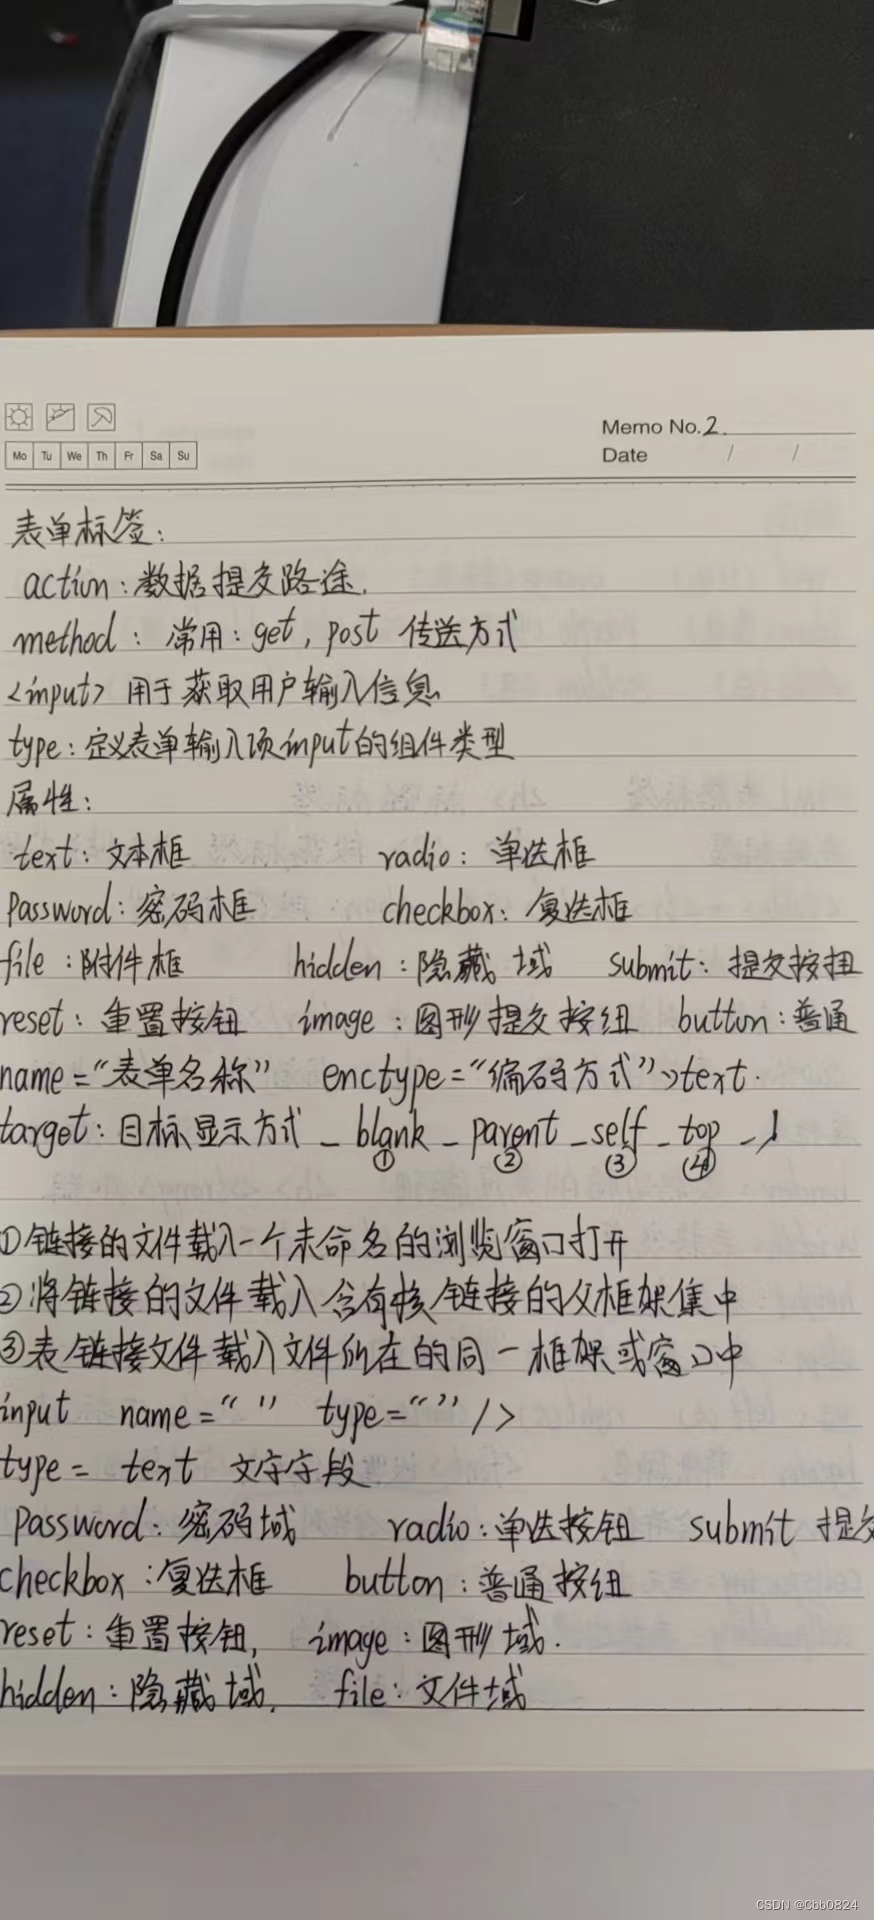 Memo No. 2.
Mo Tu We Th Fr Sa Su
Date / /
表单标签:
action:数据提交路途.
method:常用:get,post 传送方式
<input> 用于获取用户输入信息
type:定义表单输入项input的组件类型
属性:
text:文本框 radio:单选框
Password:密码框 checkbox:复选框
file:附件框 hidden:隐藏域 submit:提交按扭
reset:重置按钮 image:图形提交按纽 button:普通
name="表单名称" enctype="编码方式" text.
target:目标显示方式 _blank _parent _self _top
① ② ③ ④
①链接的文件载入一个未命名的浏览窗口打开
②将链接的文件载入含有该链接的父框架集中
③表链接文件载入文件所在的同一框架或窗口中
input name=" " type="" />
type= text 文字字段
Password:密码域 radio:单选按钮 submit 提交
checkbox:复选框 button:普通按纽
reset:重置按钮, image:图形域.
hidden:隐藏域, file:文件域
CSDN @Cbb0824